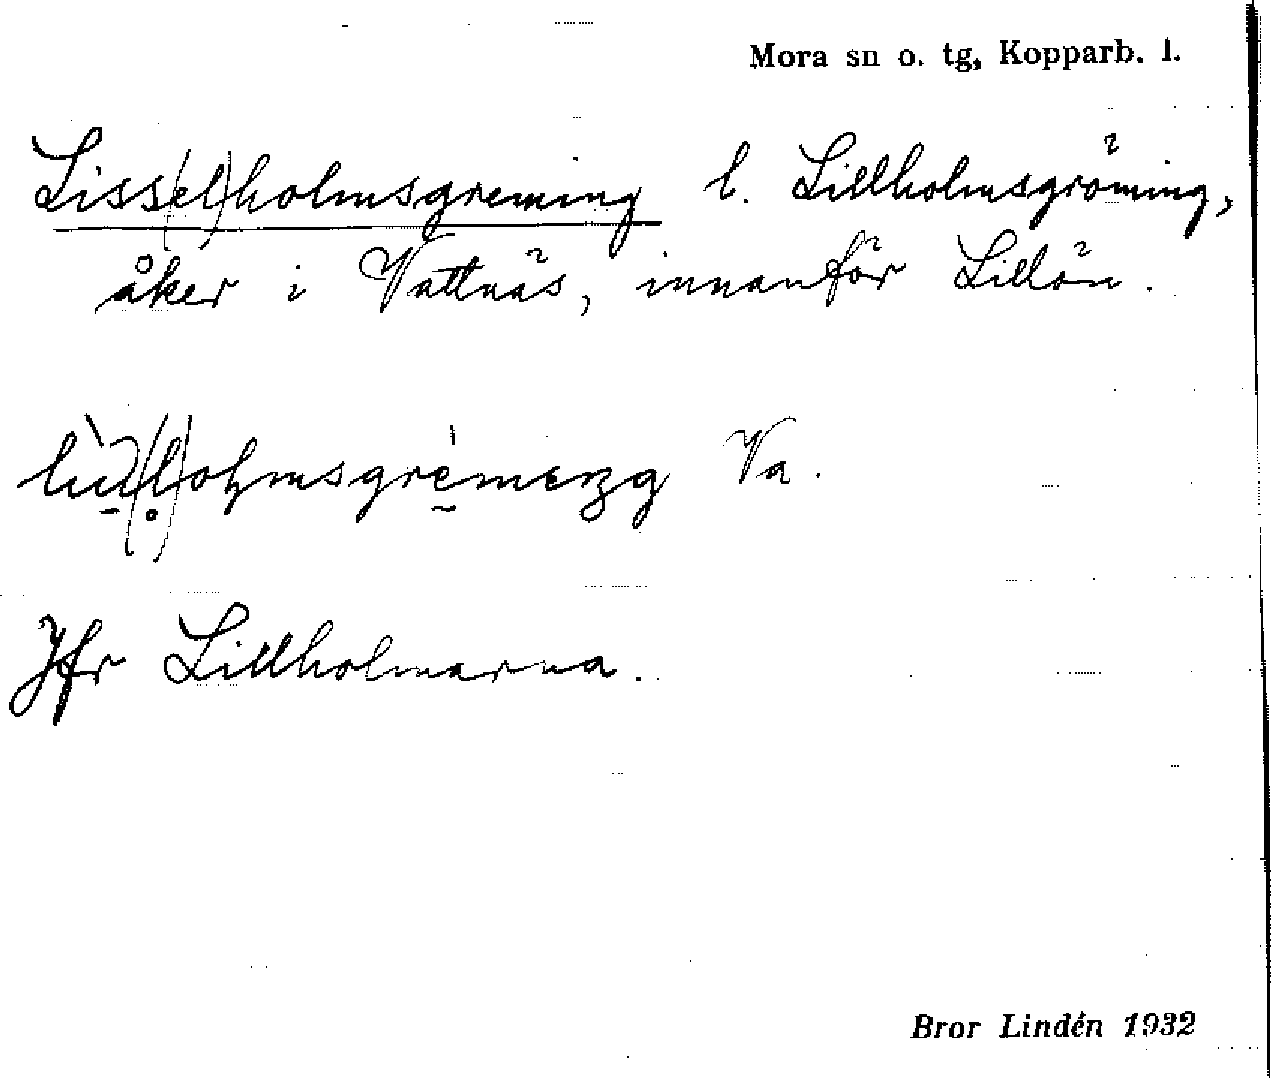 Mora sn o. tg, Kopparb. l.
Liss(el)holmsgreming l. Lillholmsgröming,
åker i Vattnäs, innanför Lillön.
Va.
Jfr Lillholmarna.
Bror Lindén 1932